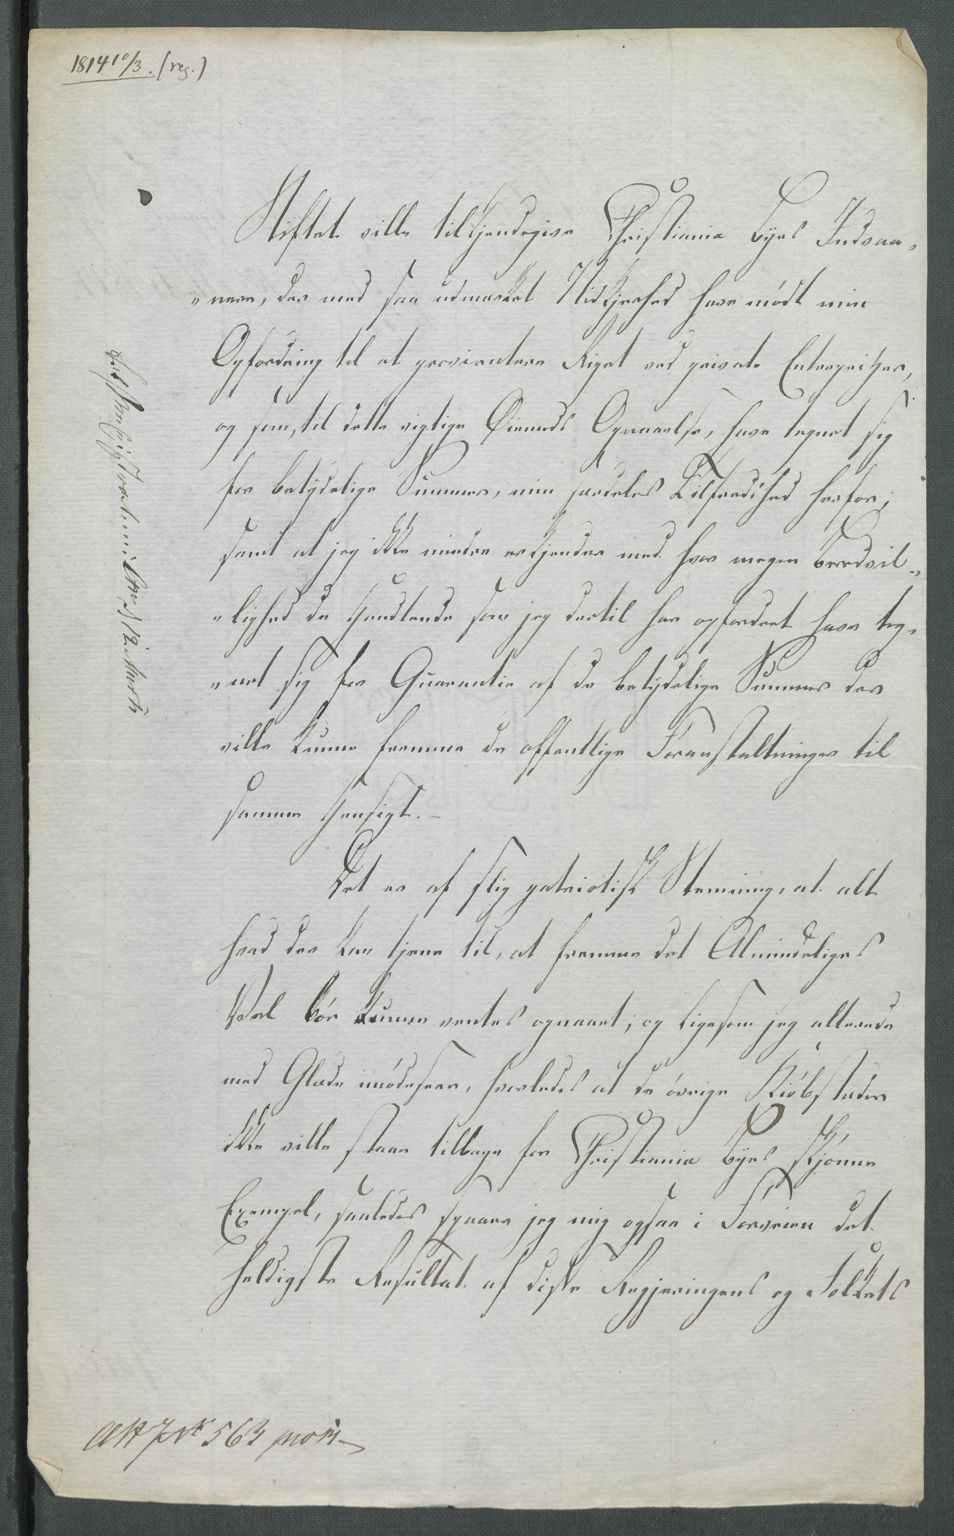 1814 10/3. (reg.)
Stiftet ville tilkjendegive Christiania Byes Indvaa-
-nere, der med saa udmærket Nidkjerhed have mødt min
Opfordring til at proviantere Riget ved private Entrepriser,
og som, til dette vigtige Øiemeds Opnaaelse, have tegnet sig
for betydelige Summer, min særdeles Tilfredshed herfor;
samt at jeg ikke mindre erkjender med hvor megen Beredvil-
-lighed de Handlende som jeg dertil har opfordret have teg-
-net sig for Guarantie af de betydelige Summer der
ville kunne fremme de offentlige Foranstaltninger til
samme Hensigt.-
Det er af slig patriotisk Stemning, at alt
hvad der kan tjene til, at fremme det Almindeliges
Vel bør kunne ventes opnaaet; og ligesom jeg allerede
med Glæde imødeseer, hvorledes at de øvrige Kiøbstæder
ikke ville staae tilbage for Christiania Byes skjønne
Exempel, saaledes spaaer jeg mig ogsaa i Forveien det
heldigste Resultat af disse Regjeringens og Folkets
12 Marts
No 563